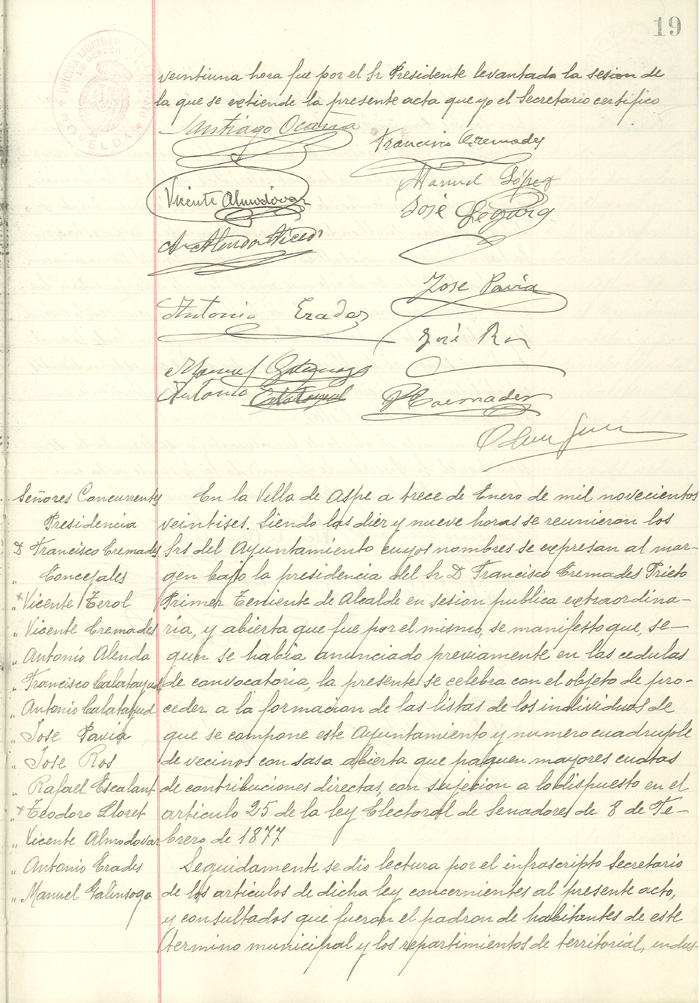 19
OFICINA LIQUIDADORA
NOVELDA
veintiuna hora fue por el Sr Presidente levantada la sesion de
la que se extiende la presente acta que yo el Secretario certifico
Santiago
Francisco Cremades
Manuel López
Vicente Almodóvar
José
Jose Pavia
Antonio Erades
José Ros
Manuel
Antonio Calatayud
Señores Concurrentes
Presidencia
D Francisco Cremades
" Concejales
" Vicente Terol
" Vicente Cremades
" Antonio Alenda
" Francisco Calatayud
" Antonio Calatayud
" Jose Pavia
" Jose Ros
" Rafael Escalant
" Teodoro Lloret
" Vicente Almodovar
" Antonio Erades
" Manuel Galinsoga
En la Villa de Aspe a trece de Enero de mil novecientos
veintises. Siendo las diez y nueve horas se reunieron los
Srs del Ayuntamiento cuyos nombres se expresan al mar-
gen bajo la presidencia del Sr D Francisco Cremades Prieto
Primer Teniente de Alcalde en sesion publica extraordina-
ria, y abierta que fue por el mismo, se manifesto que, se-
gun se habia anunciado previamente en las cedulas
de convocatoria, la presente se celebra con el objeto de pro-
ceder a la formacion de las listas de los individuos de
que se compone este Ayuntamiento y numero cuadruple
de vecinos con sasa abierta que paguen mayores cuotas
de contribuciones directas, con sujecion a lo dispuesto en el
articulo 25 de la ley Electoral de Senadores de 8 de Fe-
brero de 1877
Seguidamente se dio lectura por el infrascripto Secretario
de los articulos de dicha ley concernientes al presente acto,
y consultados que fueron el padron de habitantes de este
termino municipal y los repartimientos de territorial, indus